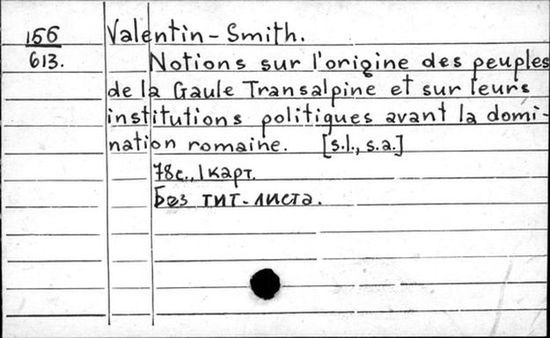 156
613.
Valentin-Smith.
Notions sur l'origine des peuples
de la Gaule Transalpine et sur leurs
institutions politiques avant la domi-
nation romaine. [s.l., s.a.]
78с., 1 карт.
Без тит-листа.